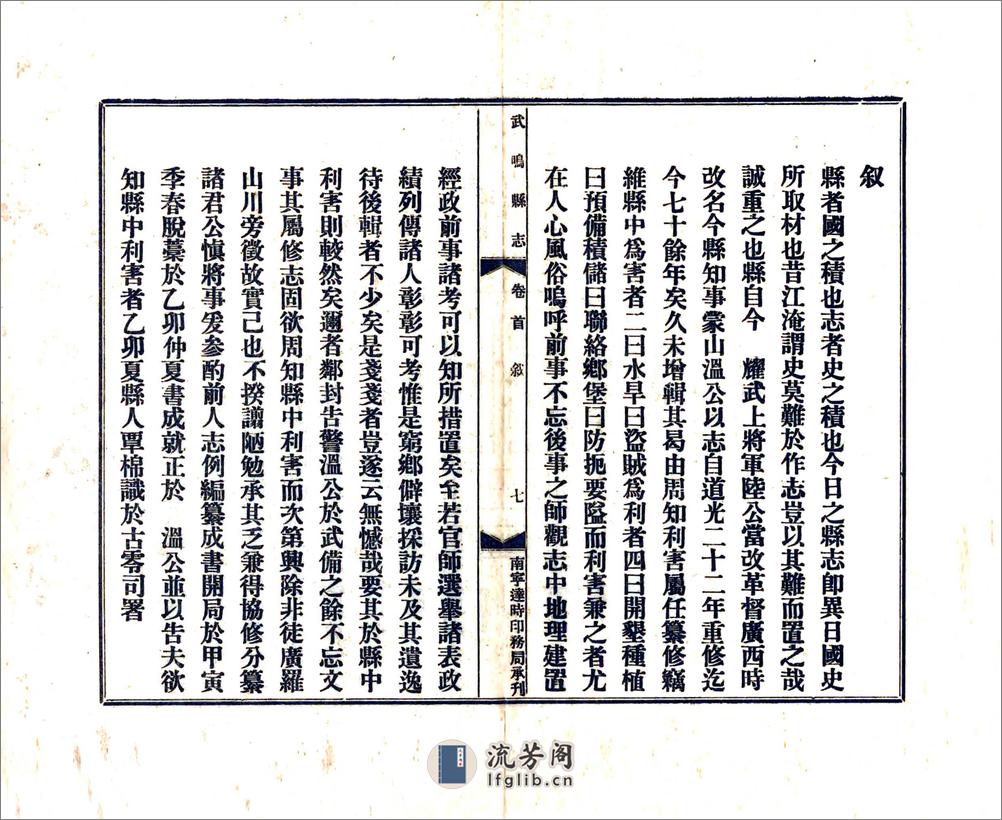 叙
縣者國之積也志者史之積也今日之縣志卽異日國史
所取材也昔江淹謂史莫難於作志豈以其難而置之哉
誠重之也縣自今　耀武上將軍陸公當改革督廣西時
改名今縣知事蒙山溫公以志自道光二十二年重修迄
今七十餘年矣久未增輯其曷由周知利害屬任纂修竊
維縣中爲害者二曰水旱曰盜賊爲利者四曰開墾種植
曰預備積儲曰聯絡鄉堡曰防扼要隘而利害兼之者尤
在人心風俗嗚呼前事不忘後事之師觀志中地理建置
武鳴縣志
卷首　叙
七
南寧達時印務局承刊
經政前事諸考可以知所措置矣至若官師選舉諸表政
績列傳諸人彰彰可考惟是窮鄉僻壤採訪未及其遺逸
待後輯者不少矣是戔戔者豈遂云無憾哉要其於縣中
利害則較然矣邇者鄰封告警溫公於武備之餘不忘文
事其屬修志固欲周知縣中利害而次第興除非徒廣羅
山川旁徵故實已也不揆譾陋勉承其乏兼得協修分纂
諸君公愼將事爰參酌前人志例編纂成書開局於甲寅
季春脫藁於乙卯仲夏書成就正於　溫公並以告夫欲
知縣中利害者乙卯夏縣人覃棉識於古零司署
流芳阁
lfglib.cn